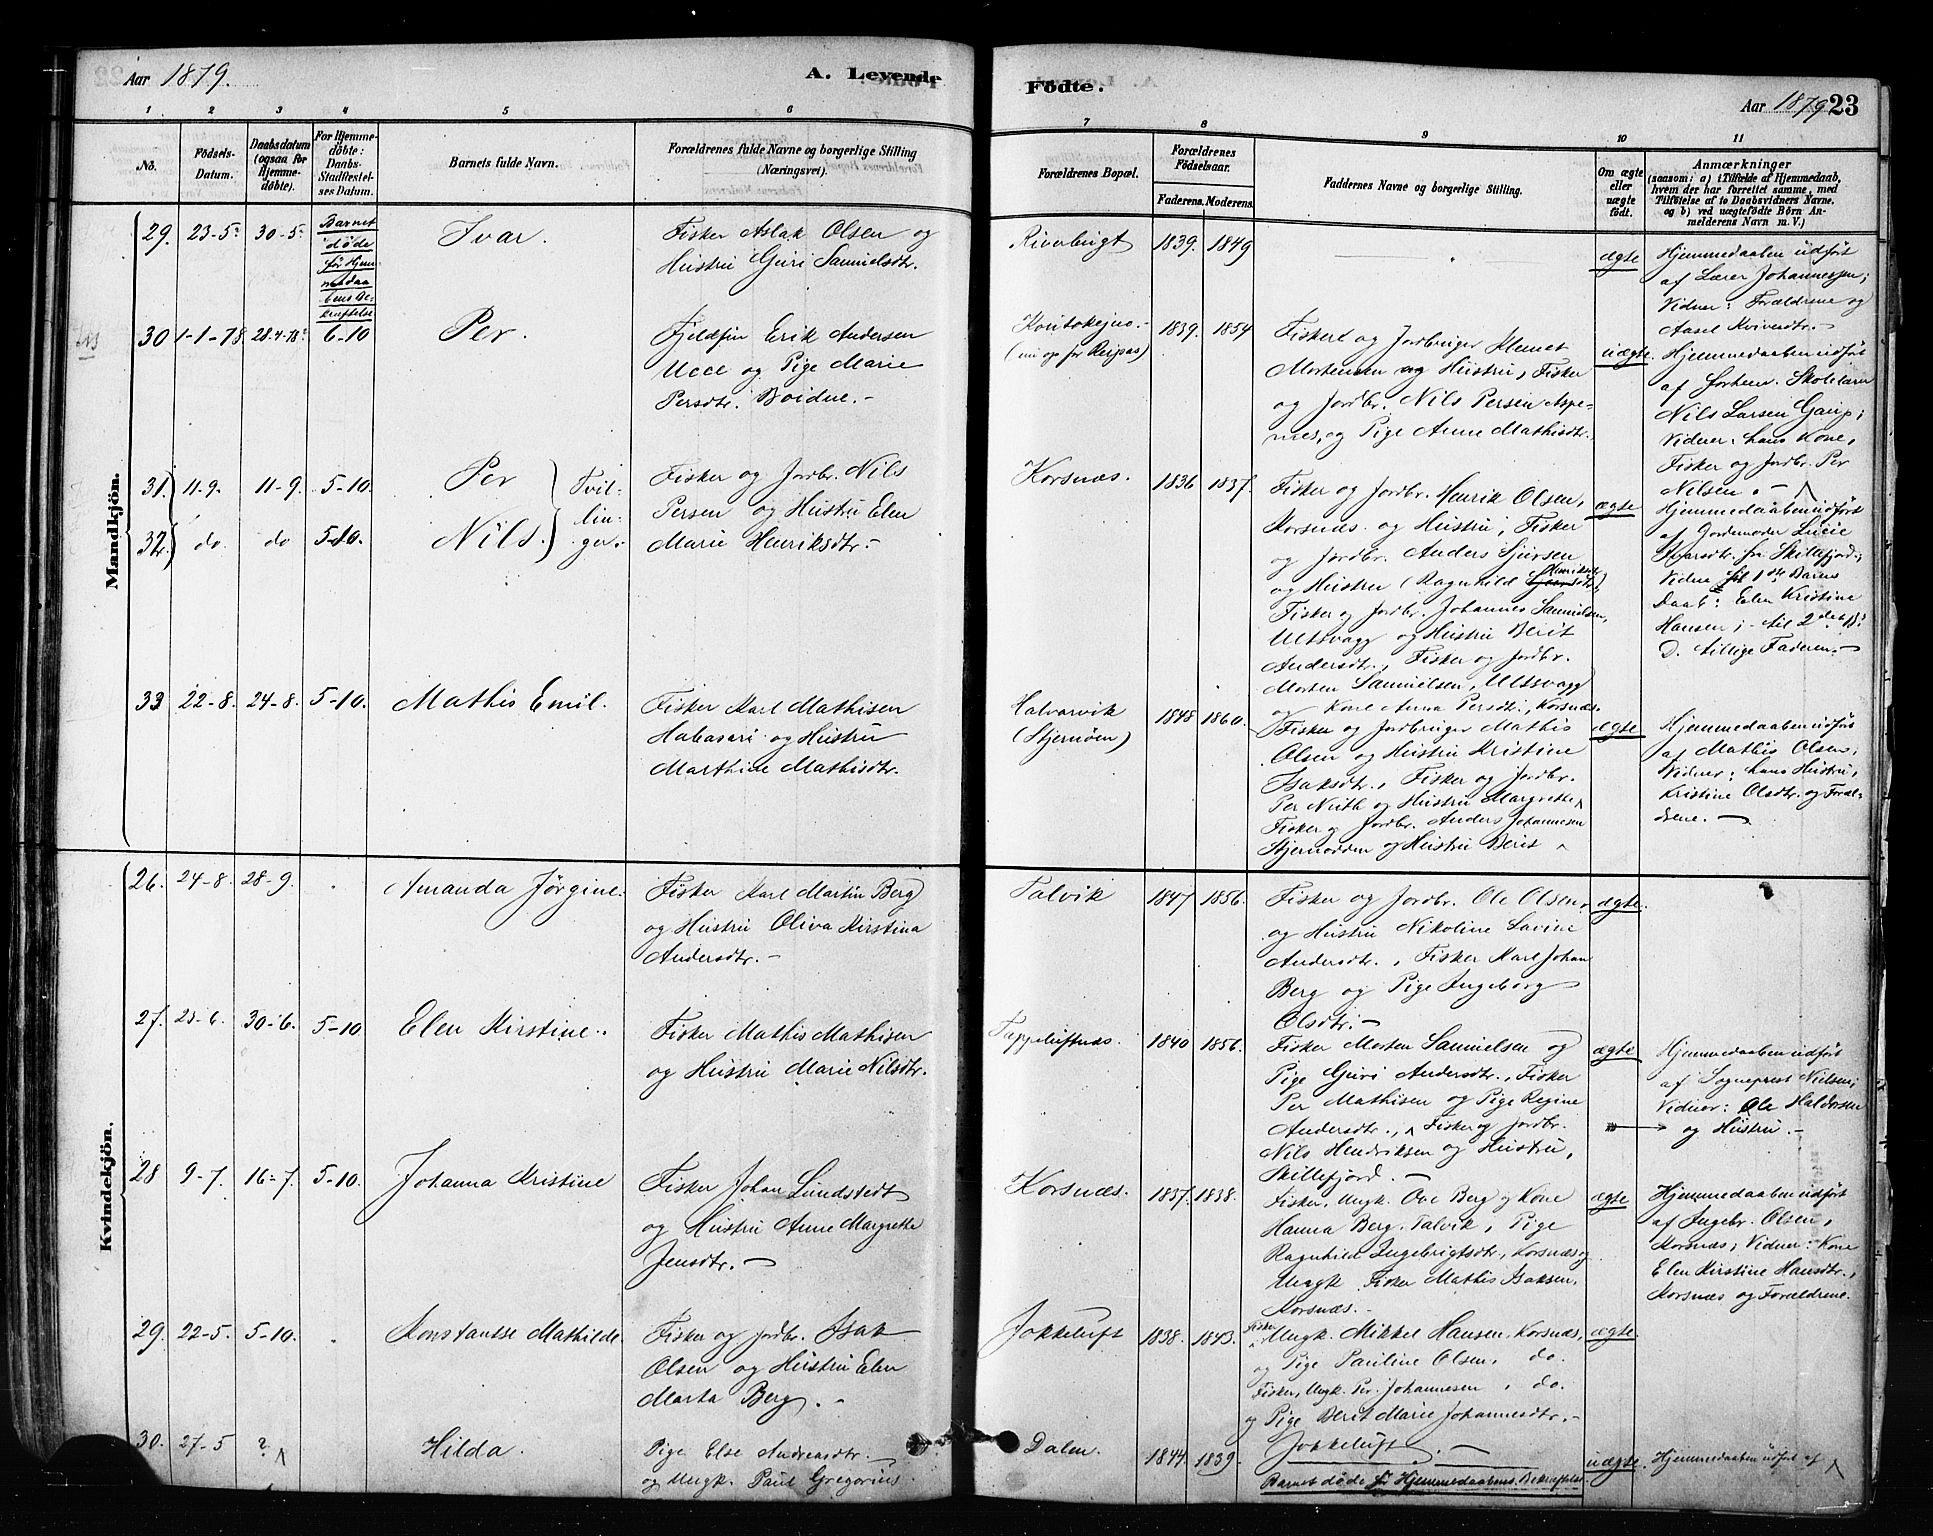 Aar 1879.
A. Levende
Födte.
Aar 1879 23
1 2 3 4 5 6 7 8 9 10 11
No.
Födsels-
Datum.
Daabsdatum
(ogsaa for
Hjemme-
döbte).
For Hjemme-
döbte:
Daabs-
Stadfæstel-
ses Datum.
Barnets fulde Navn.
Forældrenes fulde Navne og borgerlige Stilling
(Næringsvei).
Forældrenes Bopæl.
Forældrenes
Födselsaar.
Faderens. Moderens.
Faddernes Navne og borgerlige Stilling.
Om ægte
eller
uægte
födt.
Anmærkninger
(saasom: a) i Tilfælde af Hjemmedaab,
hvem der har forrettet samme, med
Tilföielse af to Daabsvidners Navne,
og b) ved uægtefödte Börn An-
melderens Navn m. V.)
Mandkjön.
29. 23-5. 30-5.
Barnet
døde
før Hjem-
medaa
bens Be-
kræftelse
Ivar.
Fisker Aslak Olsen og
Hustru Guri Samuelsdtr.
1839. 1849
ægte
Hjemmedaaben udført
af Lærer Johannessen;
Vidner: Forældrene og
30 1-1-78 28-4-78 6-10
Per.
Fjeldfin Erik Andersen
Ucce og Pige Marie
Persdtr. Boidne.-
Koutokejno.-
1839. 1854
Fisker og Jordbruger Klemet
Mortensen og Hustru, Fisker
og Jordbr. Nils Persen Aspe-
nes, og Pige Anne Mathisdtr.
uægte.
Hjemmedaaben udført
Nils Larsen Gaup;
Vidner: hans Kone,
Fisker og Jordbr. Per
Nilsen.-
31. 11-9. 11-9. 5-10.
Per
32. do do 5-10.
Nils.
Tvil-
lin-
ger.
Fisker og Jordbr. Nils
Persen og Hustru Elen
Marie Henriksdtr.-
Korsnæs.
1836 1837.
Fisker og Jordbr. Henrik Olsen,
Korsnæs og Hustru, Fisker
og Jordbr. Anders Sjursen
og Hustru (Ragnhild Henriksdtr)
Fisker og Jordbr. Johannes Samuelsen,
Ultsvagg og Hustru Berit
Andersdtr., Fisker og Jordbr.
Morten Samuelsen, Ultsvagg
og Kone Anna Persdtr, Korsnæs.
ægte
Hjemmedaaben udført
af Gordemoder Lucie
Ivarsdtr. fra Skillefjord;
Vidne til 1ste Barns
Daab: Elen Kristine
Hansen; til 2det B:s
D. tillige Faderen.-
33 22-8. 24-8. 5-10.
Mathis Emil.
Fisker Karl Mathisen
Habasari og Hustru
Marthine Mathisdtr.
Halvarvik
(Stjernøen)
1848 1860.
Fisker og Jordbruger Mathis
Olsen og Hustru Kristine
Isaksdtr., Fisker og Jordbr.
Per Nuith og Hustru Margrethe
Fisker og Jordbr. Anders Johannesen
Stjernodden og Hustru Berit
ægte
Hjemmedaaben udført
af Mathis Olsen;
Vidner: hans Hustru,
Kristine Olsdtr. og Foræl-
drene.-
Kvindekjön.
26. 24-8. 28-9.
Amanda Jørgine.
Fisker Karl Martin Berg
og Hustru Oliva Kirstina
Andersdtr.-
Talvik
1847 1856.
Fisker og Jordbr. Ole Olsen,
og Hustru Nikoline Lavine
Andersdtr., Fisker Karl Johan
Berg og Pige Ingeborg
Olsdtr.-
ægte.
27. 25-6. 30-6. 5-10.
Elen Kirstine.
Fisker Mathis Mathisen
og Hustru Marie Nilsdtr.
Tappeluftnæs.
1840 1856.
Fisker Morten Samuelsen og
Pige Guri Andersdtr., Fisker
Per Mathisen og Pige Regine
Andersdtr., Fisker og Jordbr.
Nils Hendriksen og Hustru,
Skillefjord.-
ægte
Hjemmedaaben udført
af Sogneprest Nielsen;
Vidner: Ole Haldorsen
og Hustru.-
28 9-7. 16-7. 5-10.
Johanna Kristine
Fisker Johan Lundstedt
og Hustru Anne Margrethe
Jensdtr.-
Korsnæs.
1837. 1838.
Fisker, Ungk. Ove Berg og Kone
Hanna Berg. Talvik, Pige
Ragnhild Ingebrigtsdtr., Korsnæs og
Ungk. Fisker Mathis Isaksen,
Korsnæs.-
ægte
Hjemmedaaben udført
af Ingebr. Olsen,
Korsnæs; Vidner: Kone
Elen Kirstine Hansdtr.,
Korsnæs og Forældrene.
29. 22-5. 5-10.
Konstantse Mathilde.
Fisker og Jordbr. Isak
Olsen og Hustru Elen
Marta Berg.-
Jokkeluft
1838. 1843.
Fisker Ungk. Mikkel Hansen, Korsnæs,
og Pige Pauline Olsen, do.
Fisker, Ungk. Per Johannesen, do.
og Pige Berit Marie Johannesdtr.-
Jokkeluft.-
ægte.
30. 27-5 ?
Hilda.
Pige Else Andreasdtr.
og Ungk. Paul Gregorius.
Dalen.
1844. 1839.
Barnet døde før Hjemmedaabens Bekræftelse.
uægte.
Hjemmedaaben udført af